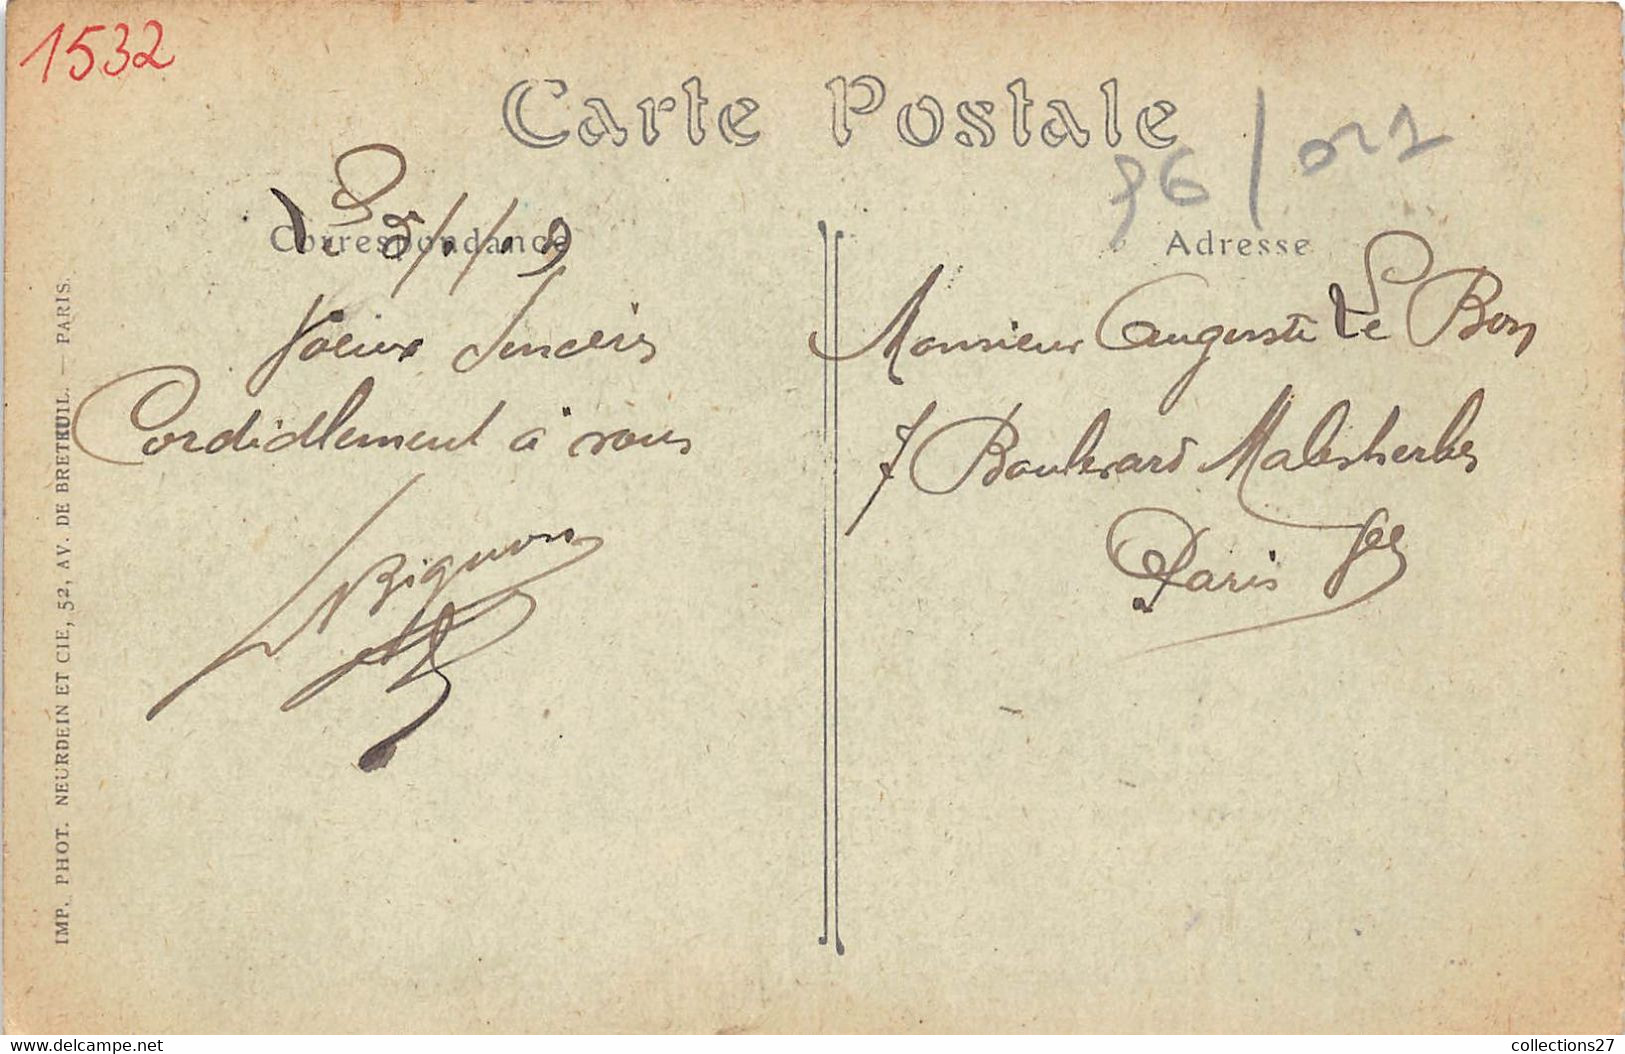 1532
Carte Postale
Correspondance
Le 5/1/19
Voeux Sincères
Cordialement à vous
Bignon
Adresse
Monsieur Auguste Le Bon
7 Boulevard Malesherbes
Paris
IMP. PHOT. NEURDEIN ET CIE, 52, AV. DE BRETEUIL. — PARIS.
www.delcampe.net
collections27